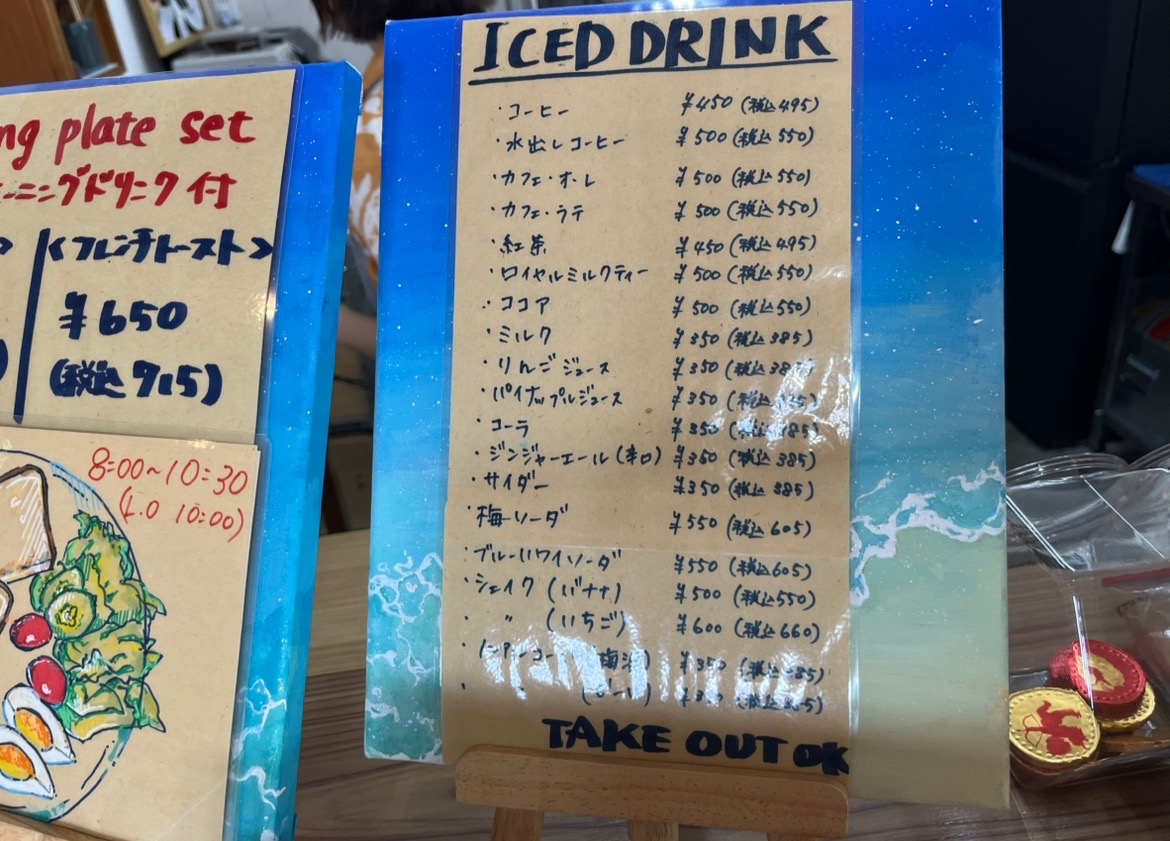 ng plate set
ーニングドリンク付
>
<フレンチトースト>
¥650
(税込715)
)
8:00~10:30
(L.O 10:00)
ICED DRINK
・コーヒー ¥450(税込495)
・水出しコーヒー ¥500(税込550)
・カフェ・オ・レ ¥500(税込550)
・カフェ・ラテ ¥500(税込550)
・紅茶 ¥450(税込495)
・ロイヤルミルクティー ¥500(税込550)
・ココア ¥500(税込550)
・ミルク ¥350(税込385)
・りんごジュース ¥350(税込385)
・パイナップルジュース ¥350(税込385)
・コーラ ¥350(税込385)
・ジンジャーエール(辛口) ¥350(税込385)
・サイダー ¥350(税込385)
・梅ソーダ ¥550(税込605)
・ブルーハワイソーダ ¥550(税込605)
・シェイク(バナナ) ¥500(税込550)
・〃(いちご) ¥600(税込660)
・ノンアルコール(梅酒) ¥350(税込385)
・ (ビール) (税込
TAKE OUT OK